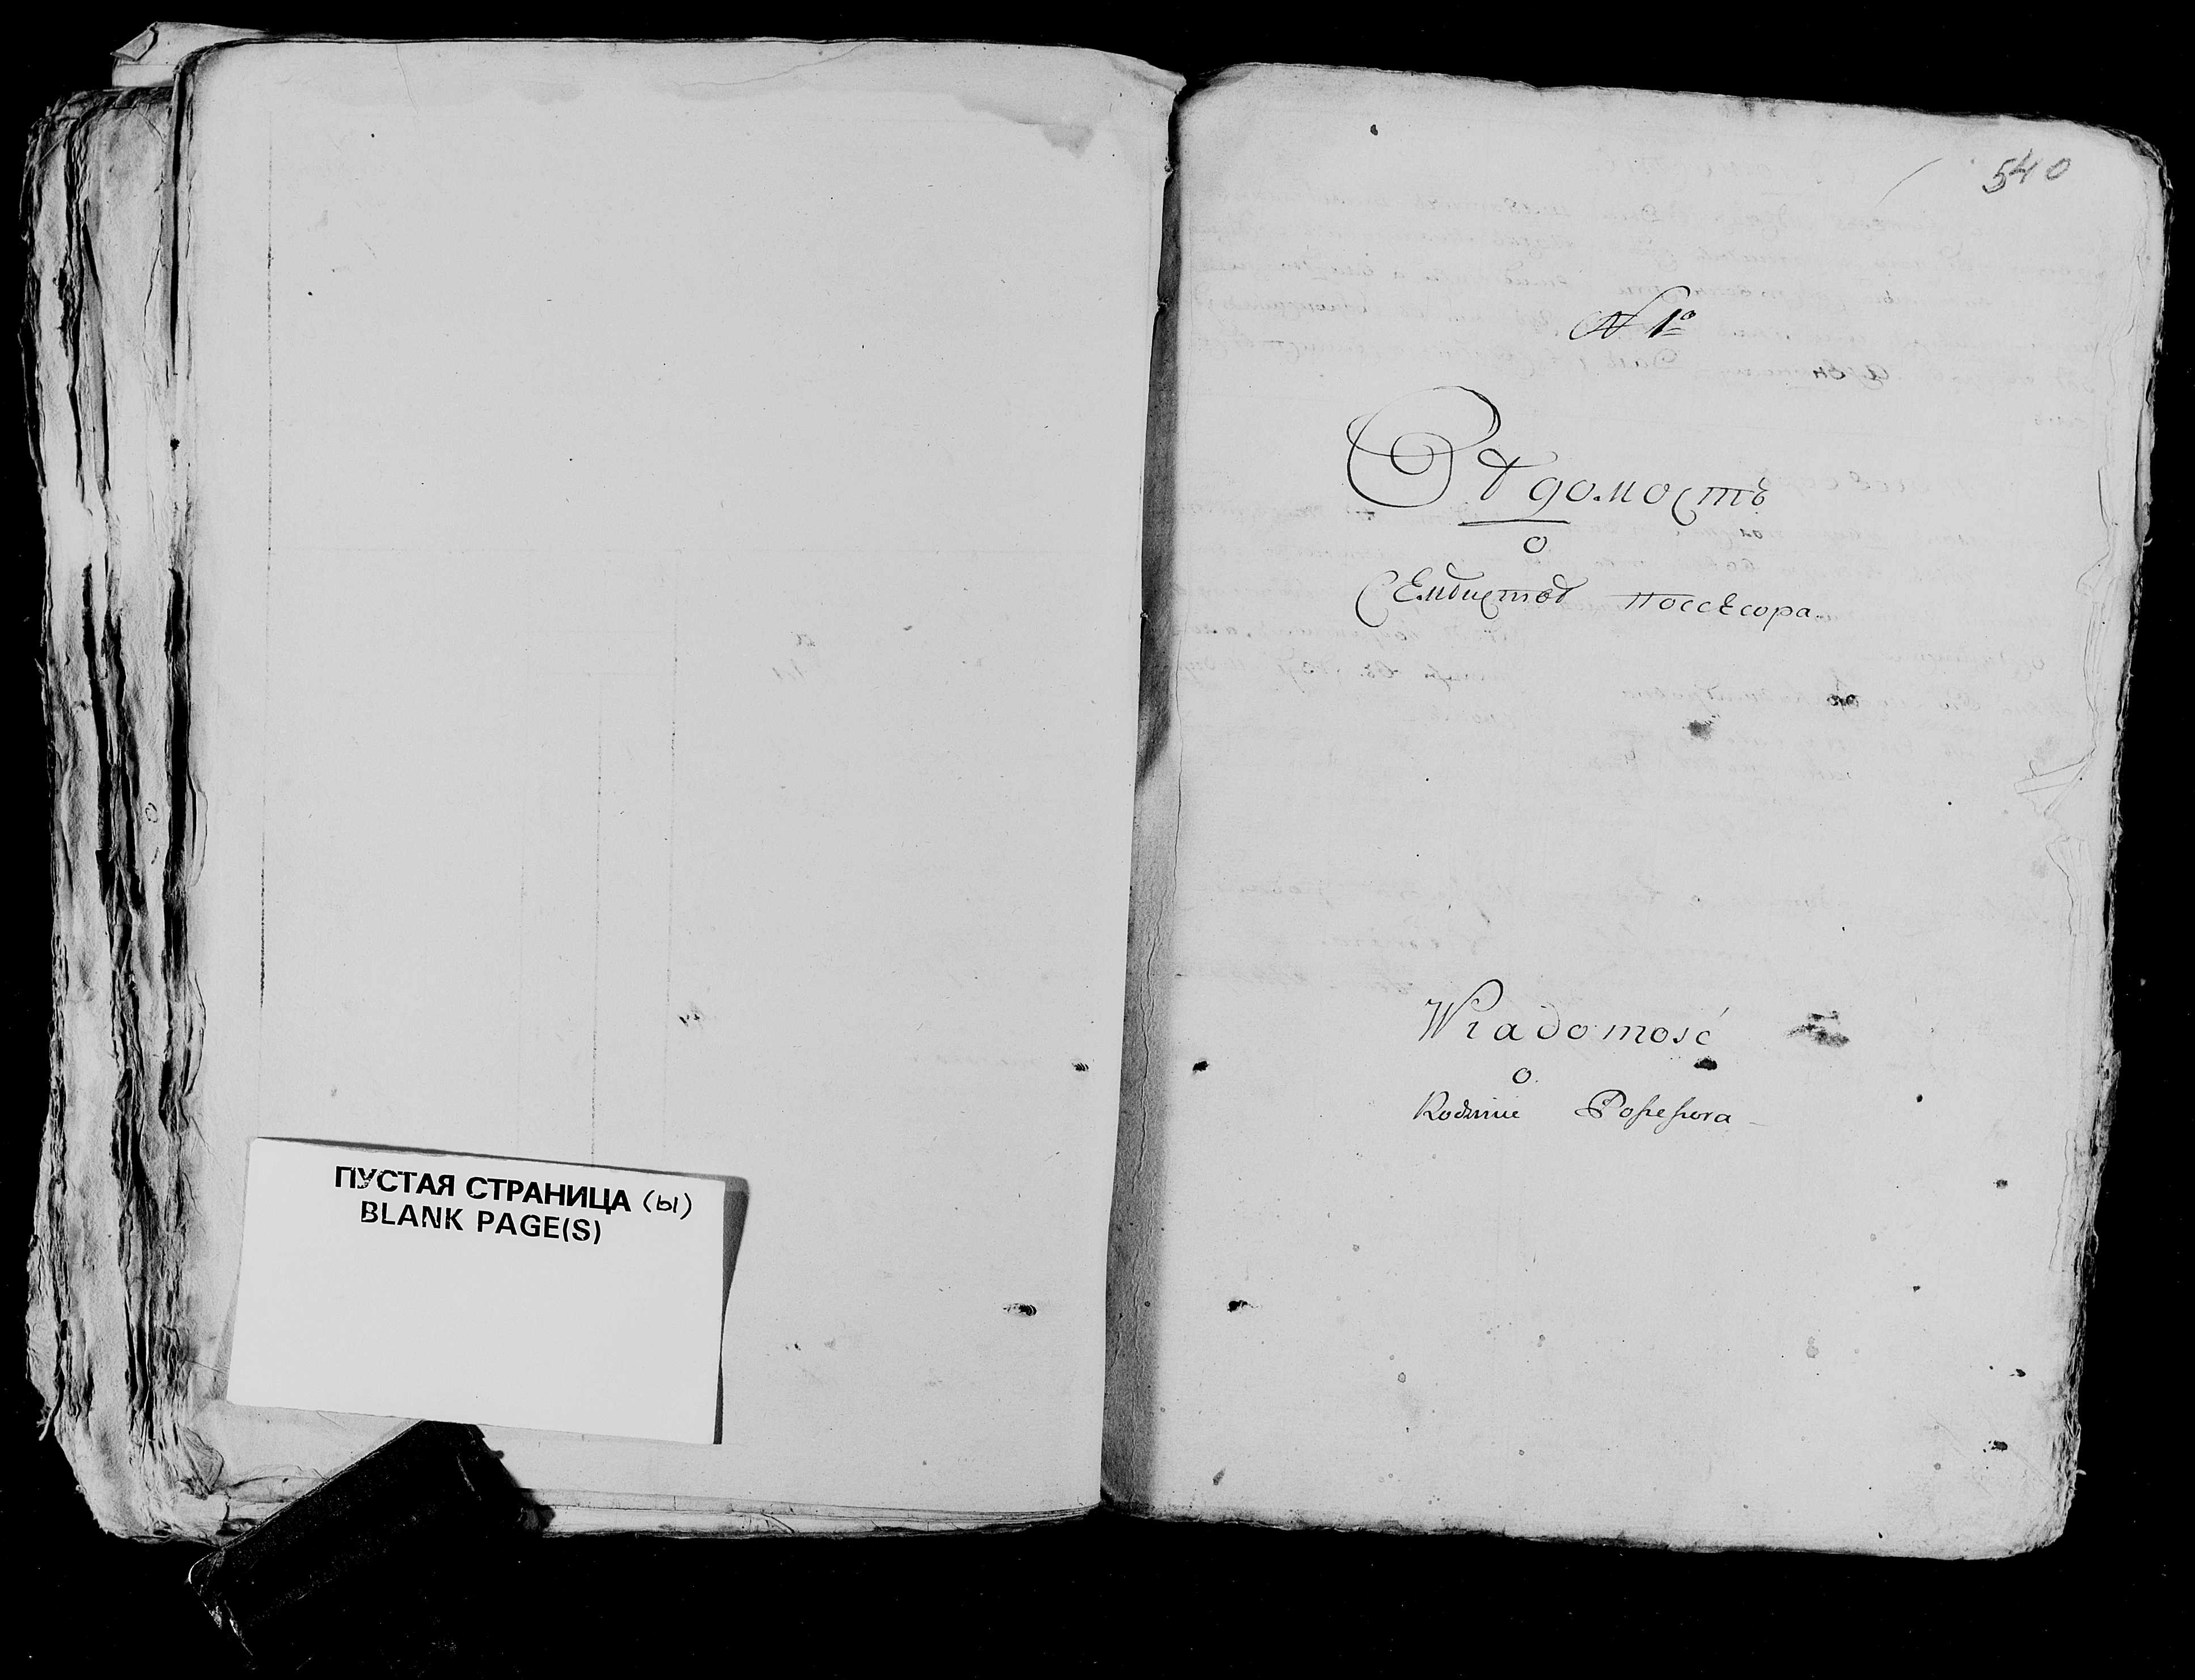 ПУСТАЯ СТРАНИЦА (Ы)
BLANK PAGE(S)
540
N 1º
Вѣдомость
о
Семѣиствѣ Поссесора.
Wiadomość
o
Rodzinie Possessora